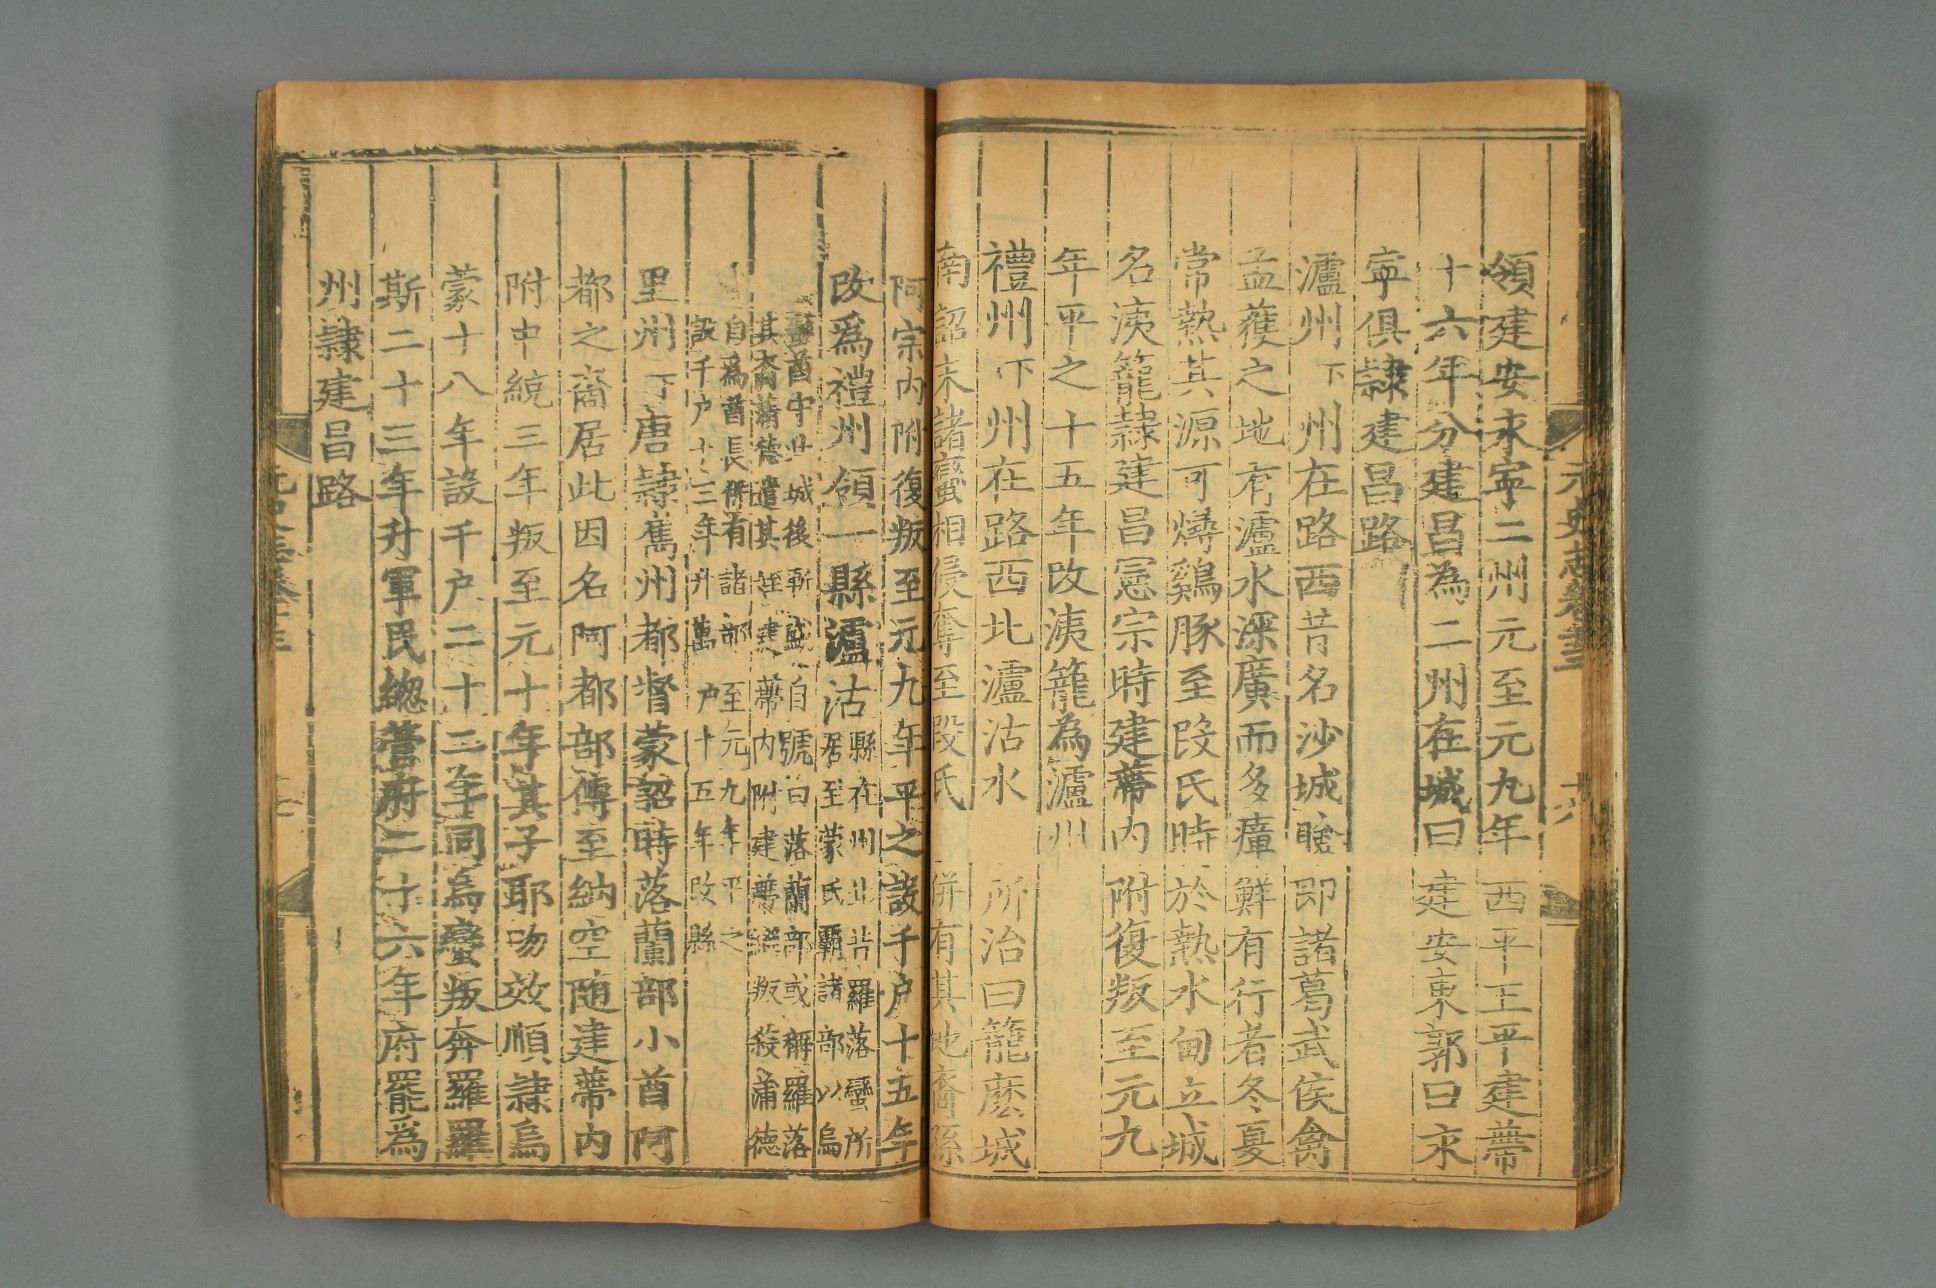 元史志卷十三
十六
領建安永寧二州元至元九年西平王平建蒂
十六年分建昌為二州在城曰建安東郭曰永
寧俱隷建昌路
瀘州下州在路西昔名沙城瞼即諸葛武侯禽
孟獲之地有瀘水深廣而多瘴鮮有行者冬夏
常熱其源可燖鷄豚至段氏時於熱水甸立城
名洟籠隷建昌憲宗時建蒂内附復叛至元九
年平之十五年改洟籠為瀘州
禮州下州在路西北瀘沽水所治曰籠麽城
南詔末諸蠻相侵奪至段氏併有其地裔孫
阿宗内附復叛至元九年平之設千户十五年
改爲禮州領一縣瀘沽縣在州北昔羅落蠻所
居至蒙氏霸諸部以烏
蠻酋守此城後漸盛自號曰落蘭部或稱羅落
其裔蒲德遣其姪建蒂内附建蒂繼叛殺蒲德
自爲酋長併有諸部至元九年平之
設千户十三年升萬户十五年改縣
里州下唐隷嶲州都督蒙詔時落蘭部小酋阿
都之裔居此因名阿都部傳至納空随建蒂内
附中統三年叛至元十年其子耶吻效順隷烏
蒙十八年設千户二十二年同烏蠻叛奔羅羅
斯二十三年升軍民總管府二十六年府罷為
州隷建昌路